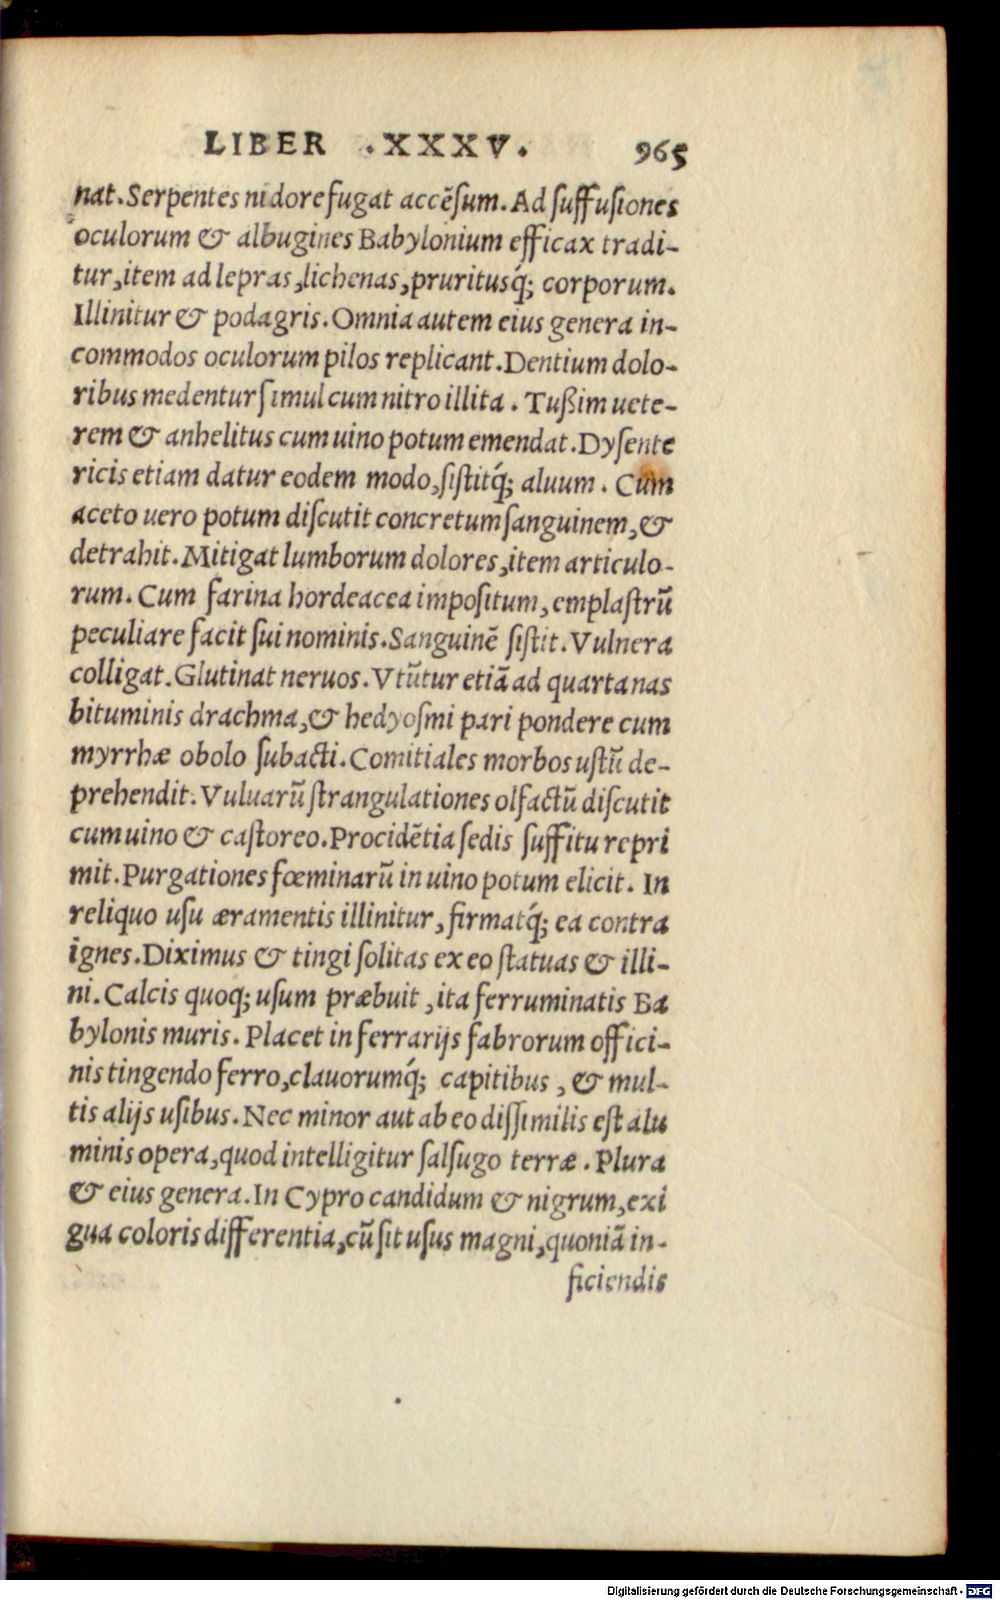 LIBER .XXXV. 965
nat. Serpentes nidore fugat accẽſum. Ad ſuffuſiones
oculorum & albugines Babylonium efficax tradi-
tur, item ad lepras, lichenas, pruritusq́; corporum.
Illinitur & podagris. Omnia autem eius genera in-
commodos oculorum pilos replicant. Dentium dolo-
ribus medentur ſimul cum nitro illita. Tußim uete-
rem & anhelitus cum uino potum emendat. Dyſente
ricis etiam datur eodem modo, ſiſtitq́; aluum. Cum
aceto uero potum diſcutit concretum ſanguinem, &
detrahit. Mitigat lumborum dolores, item articulo-
rum. Cum farina hordeacea impoſitum, emplaſtrũ
peculiare facit ſui nominis. Sanguinẽ ſiſtit. Vulnera
colligat. Glutinat neruos. Vtũtur etiã ad quartanas
bituminis drachma, & hedyoſmi pari pondere cum
myrrhæ obolo ſubacti. Comitiales morbos uſtũ de-
prehendit. Vuluarũ ſtrangulationes olfactũ diſcutit
cum uino & caſtoreo. Procidẽtia ſedis ſuffitu repri
mit. Purgationes fœminarũ in uino potum elicit. In
reliquo uſu æramentis illinitur, firmatq́; ea contra
ignes. Diximus & tingi ſolitas ex eo ſtatuas & illi-
ni. Calcis quoq; uſum præbuit, ita ferruminatis Ba
bylonis muris. Placet in ferrarijs fabrorum offici-
nis tingendo ferro, clauorumq́; capitibus, & mul-
tis alijs uſibus. Nec minor aut ab eo diſſimilis eſt alu
minis opera, quod intelligitur ſalſugo terræ. Plura
& eius genera. In Cypro candidum & nigrum, exi
gua coloris differentia, cũ ſit uſus magni, quoniã in-
ficiendis
Digitalisierung gefördert durch die Deutsche Forschungsgemeinschaft - DFG